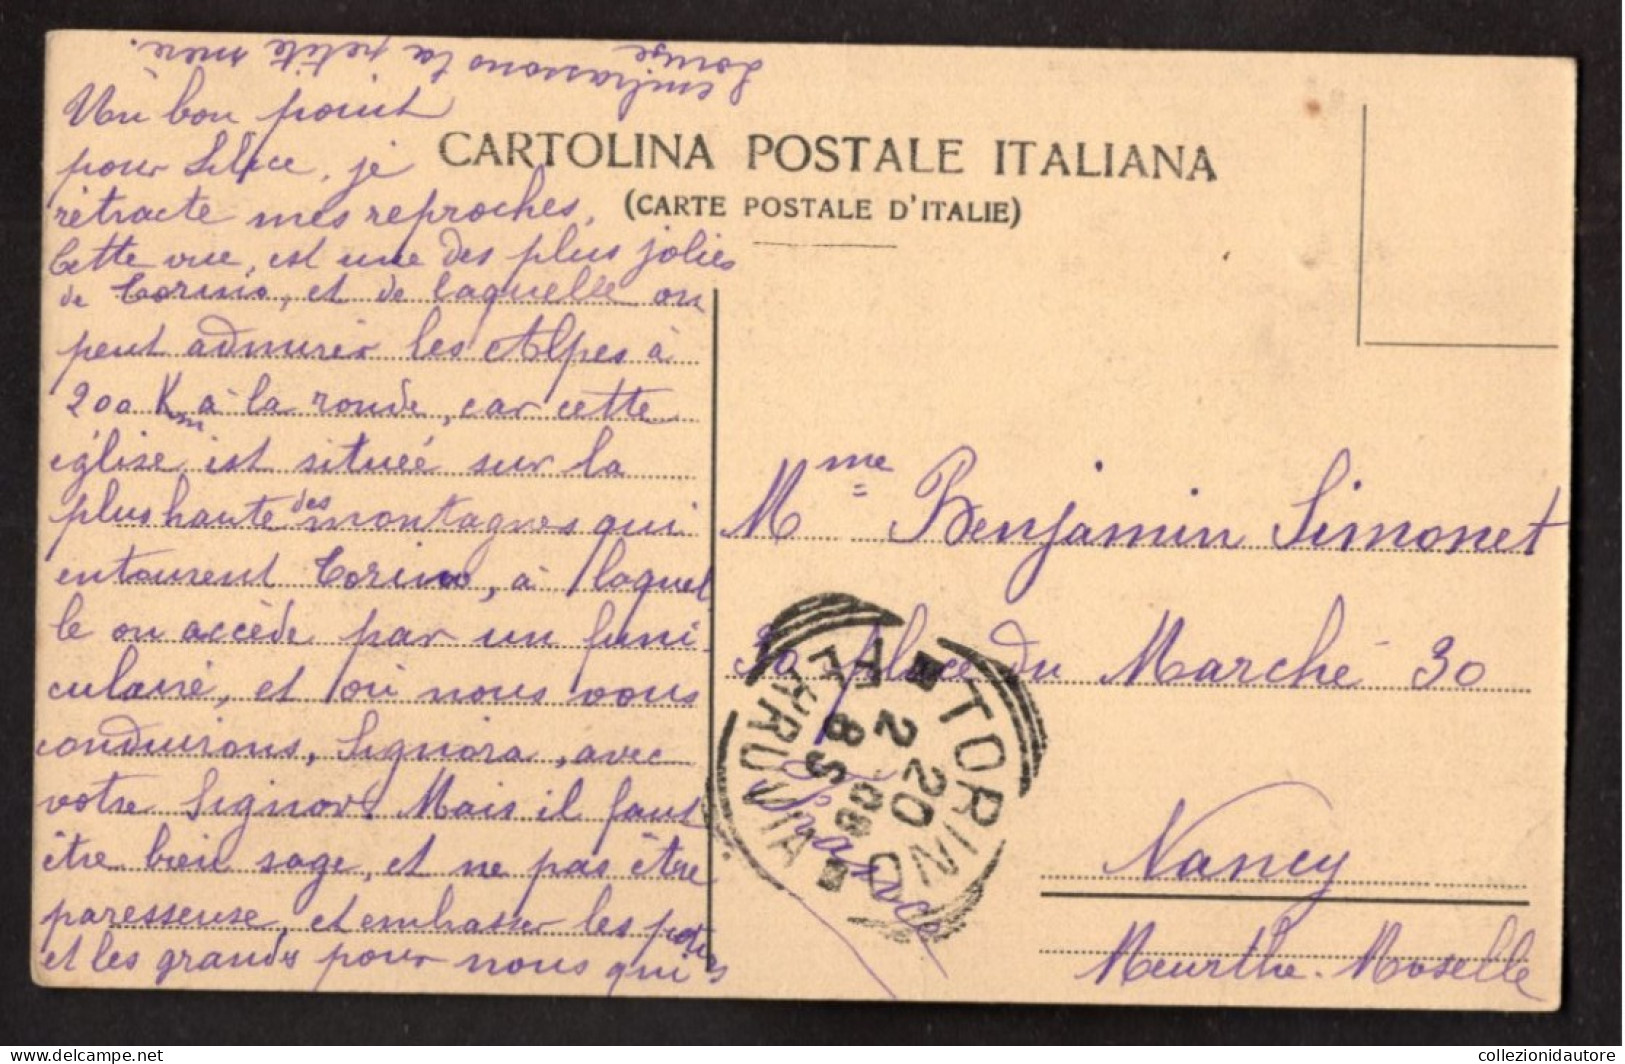 Un bon point
pour Silice, je
rétracte mes reproches.
Cette vue, est une des plus jolies
de Torino, et de laquelle on
peut admirer les Alpes à
200 Km à la ronde, car cette
église est située sur la
plus haute des montagnes qui
entourent Torino, à laquel
le on accède par un funi
culaire, et où nous vous
conduirons, Signora, avec
votre Signor. Mais il faut
être bien sage, et ne pas être
paresseuse, et embrasser les petits
et les grands pour nous qui
embrassons la petite mère.
Louise
CARTOLINA POSTALE ITALIANA
(CARTE POSTALE D'ITALIE)
Mme Benjamin Simonet
30 place du Marché 30
Nancy
Meurthe-Moselle
Francia
TORINO
FERROVIA
20
2 08
8S
collezionidautore